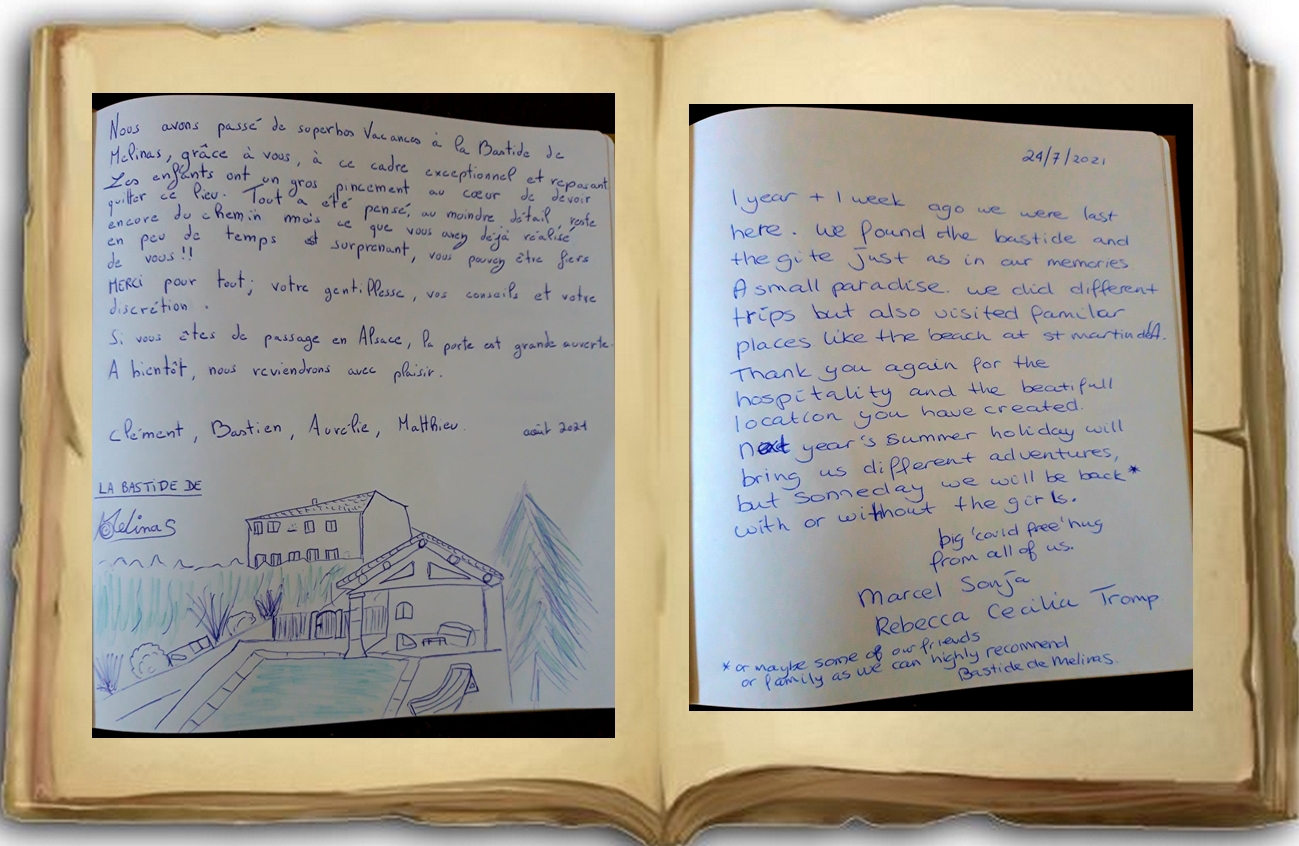 Nous avons passé de superbes Vacances à la Bastide de
Melinas, grâce à vous, à ce cadre exceptionnel et reposant
Les enfants ont un gros pincement au cœur de devoir
quitter ce lieu. Tout a été pensé, au moindre détail reste
encore du chemin mais ce que vous avez déjà réalisé
en peu de temps est surprenant, vous pouvez être fiers
de vous !!
MERCI pour tout ; votre gentillesse, vos conseils et votre
discrétion .
Si vous êtes de passage en Alsace, la porte est grande ouverte.
A bientôt, nous reviendrons avec plaisir.
Clément, Bastien, Aurélie, Matthieu. août 2021
LA BASTIDE DE
Melinas
24/7/2021
1 year + 1 week ago we were last
here. we found the bastide and
the gite just as in our memories
A small paradise. we did different
trips but also visited familar
places like the beach at st martin d'A.
Thank you again for the
hospitality and the beatifull
location you have created.
next year's summer holiday will
bring us different adventures,
but someday we will be back*
with or without the girls.
big 'covid free' hug
from all of us.
Marcel Sonja
Rebecca Cecilia Tromp
* or maybe some of our friends
or family as we can highly recommend
Bastide de Melinas.